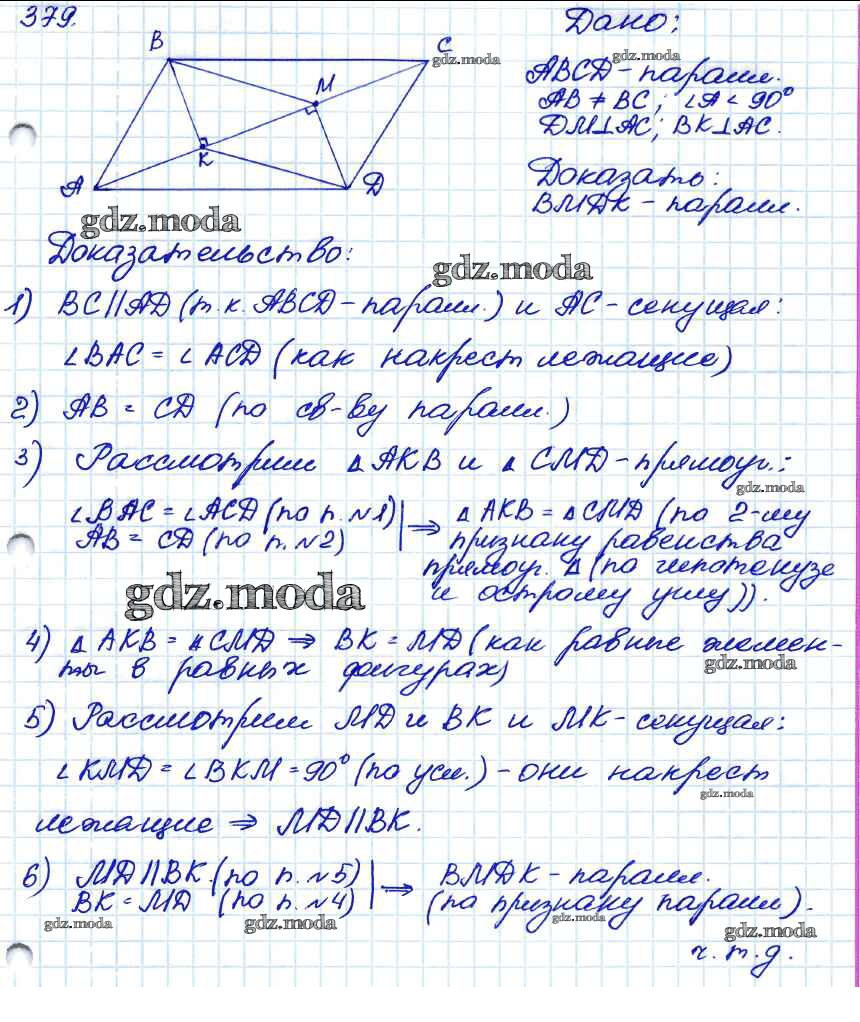 379.
Дано:
B
C
gdz.moda
gdz.moda
ABCD - паралл.
M
AB ≠ BC; ∠A < 90°
DM⊥AC; BK⊥AC.
K
A
D
Доказать:
BMDK - паралл.
gdz.moda
Доказательство:
gdz.moda
1) BC||AD (т.к. ABCD - паралл.) и AC - секущая:
∠BAC = ∠ACD (как накрест лежащие)
2) AB = CD (по св-ву паралл.)
3) Рассмотрим △AKB и △CMD - прямоуг.:
gdz.moda
∠BAC = ∠ACD (по п. №1) | ⇒ △AKB = △CMD (по 2-му
AB = CD (по п. №2) | признаку равенства
прямоуг. △ (по гипотенузе
и острому углу)).
gdz.moda
4) △AKB = △CMD ⇒ BK = MD (как равные элемен-
ты в равных фигурах)
gdz.moda
5) Рассмотрим MD и BK и MK - секущая:
∠KMD = ∠BKM = 90° (по усл.) - они накрест
gdz.moda
лежащие ⇒ MD||BK.
6) MD||BK (по п. №5) | ⇒ BMDK - паралл.
BK = MD (по п. №4) | (по признаку паралл.).
gdz.moda
gdz.moda
gdz.moda
gdz.moda
ч.т.д.